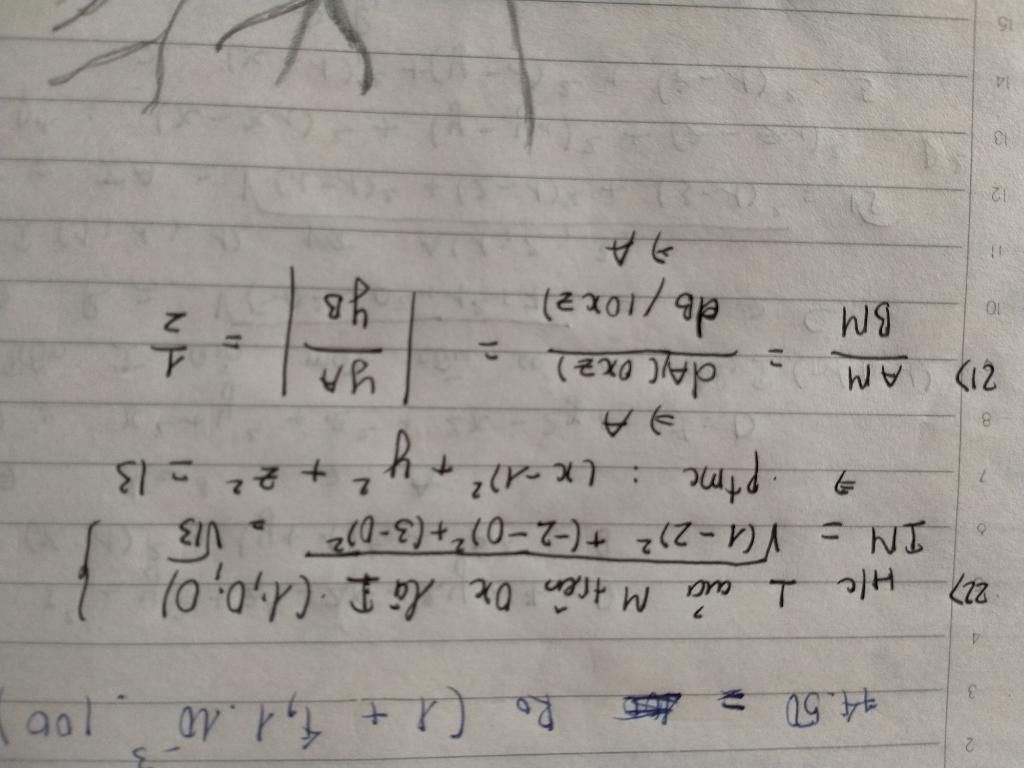 74.50 = R0 (1 + 4,1.10⁻³ . 100)
22) H/c ⊥ của M trên Ox là I (1; 0; 0)
IM = √(1-2)² + (-2-0)² + (3-0)² = √13
⇒ ptmc : (x-1)² + y² + z² = 13
⇒ A
21) AM/BM = dA/(Oxz) / dB/(Oxz) = |yA/yB| = 1/2
⇒ A